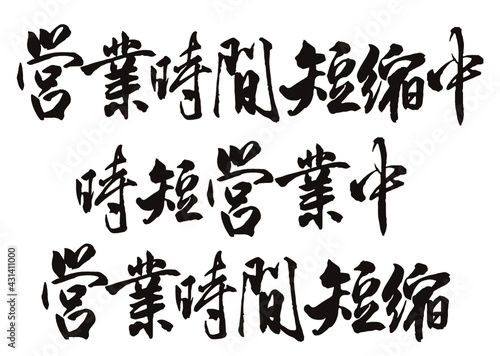 営業時間短縮中
時短営業中
営業時間短縮
Adobe Stock | #431411000